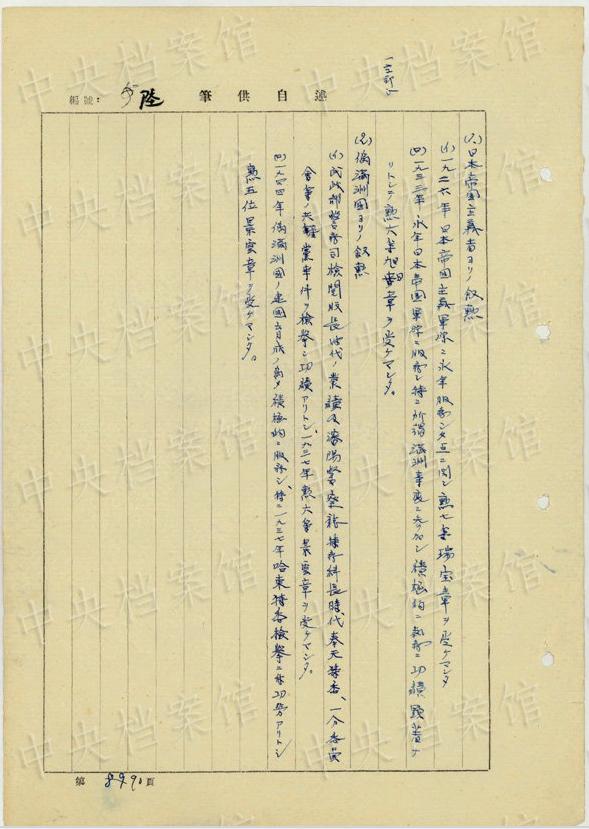 編號：
陸
筆供自述
(1)日本帝国主義者ヨリノ叙勲
(イ)一九二六年日本帝国主義軍隊ニ永年服務シタ点ニ関シ勲七等瑞宝章ヲ受ケマシタ
(ロ)一九三三年永年日本帝国軍隊ニ服務シ特ニ所謂満洲事変ニ参加シ積極的ニ勤務シ功績顕著ナ
リトシテ勲六等旭日章ヲ受ケマシタ。
(2)偽満洲国ヨリノ叙勲
(イ)民政部警務司検閲股長時代ノ業績及瀋陽警察廳特務科長時代奉天特委、一分委員
会等ノ共産黨事件ヲ検挙シ功績アリトシ、一九三七年勲六等景雲章ヲ受ケマシタ。
(ロ)一九四四年偽満洲国ノ建国育成ノ為メ積極的ニ服務シ、特ニ一九三七年哈東特委検挙ニ功労アリトシ
勲五位景雲章ヲ受ケマシタ。
第 8990 頁
中央档案馆